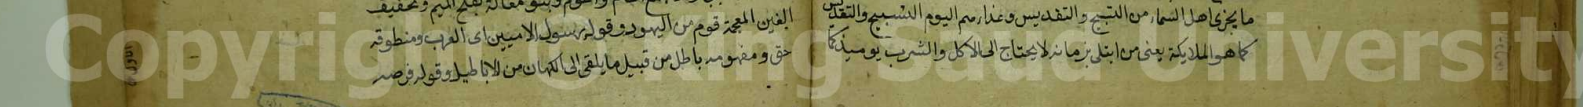 ما يجزئ اهل السماء من التسبيح والتقديس وغذاءهم اليوم التسبيح والتقديس
كما هو الملايكة يعنى من ابتلى بزمانه لا يحتاج الى الاكل والشرب يوميذ كما
بفتح الميم وتخفيف
الغين المعجمة قوم من اليهود وقوله رسول الاميين اى العرب ومنطوقه
حق ومفهومه باطل من قبيل ما يلقى الى الكهان من الاباطيل وقوله فرصه
Copyright © King Saud University